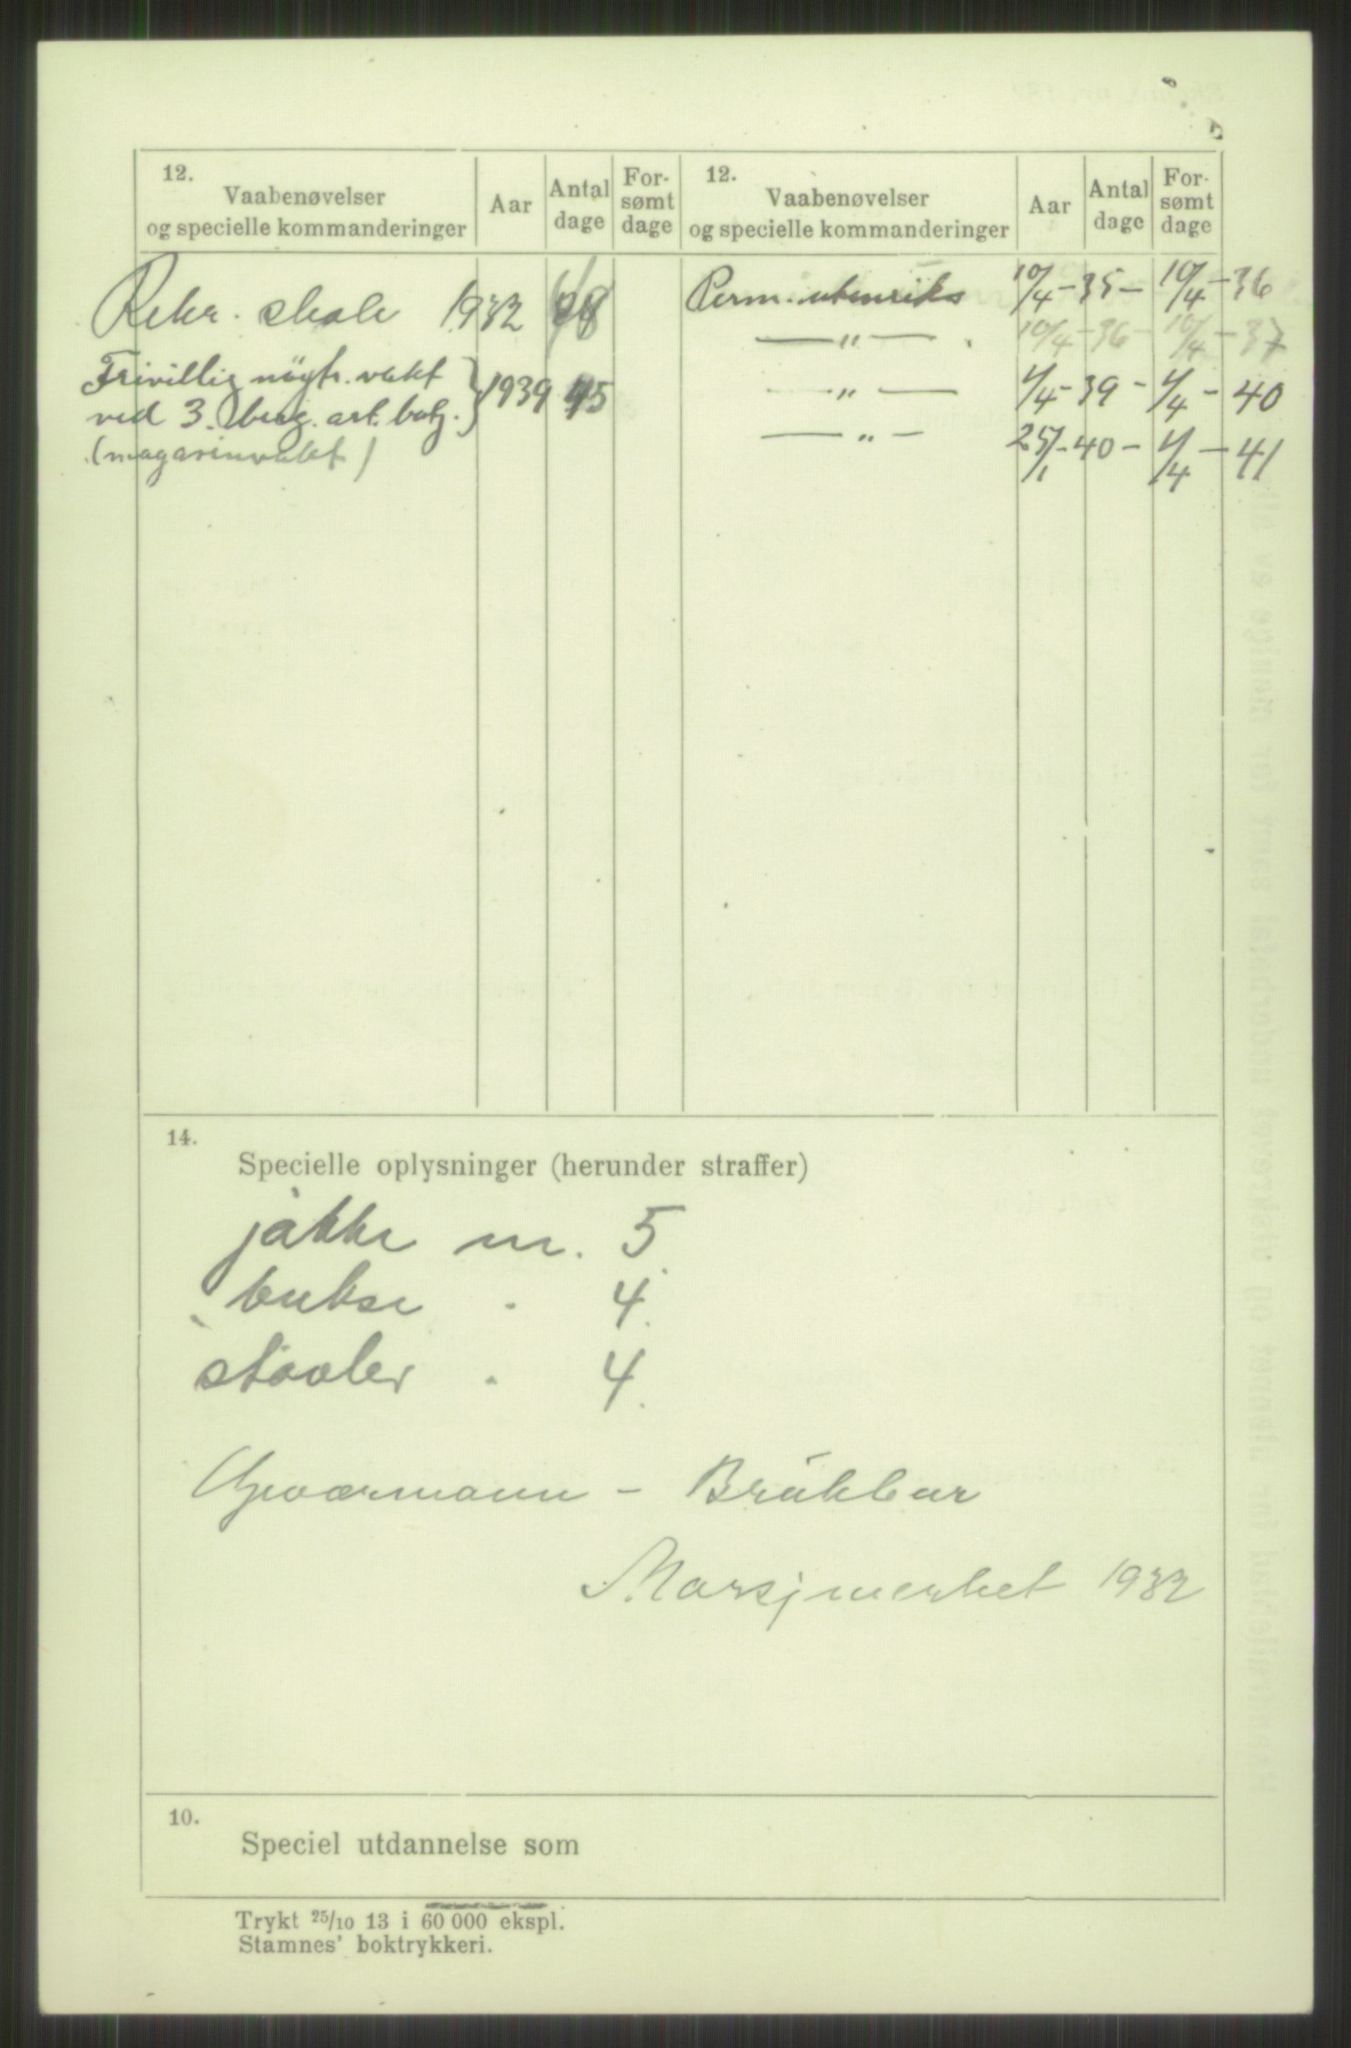 12.
Vaabenøvelser
og specielle kommanderinger
Aar
Antal
dage
For-
sømt
dage
12.
Vaabenøvelser
og specielle kommanderinger
Aar
Antal
dage
For-
sømt
dage
Rekr. skole 1932
Frivillig nøytr. vakt
ved 3. berg. art. batj. } 1939 45
(magasinvakt)
Perm. utenriks 10/4 - 35 - 10/4 - 36
— " — . 10/4 - 36 - 10/4 - 37
— " — 1/4 - 39 - 1/4 - 40
— " — 25/1 - 40 - 1/4 - 41
14.
Specielle oplysninger (herunder straffer)
jakke nr. 5
bukse " 4
støvler " 4
Geværmann - Brukbar
Marsjmerket 1932
10.
Speciel utdannelse som
Trykt 25/10 13 i 60 000 ekspl.
Stamnes' boktrykkeri.